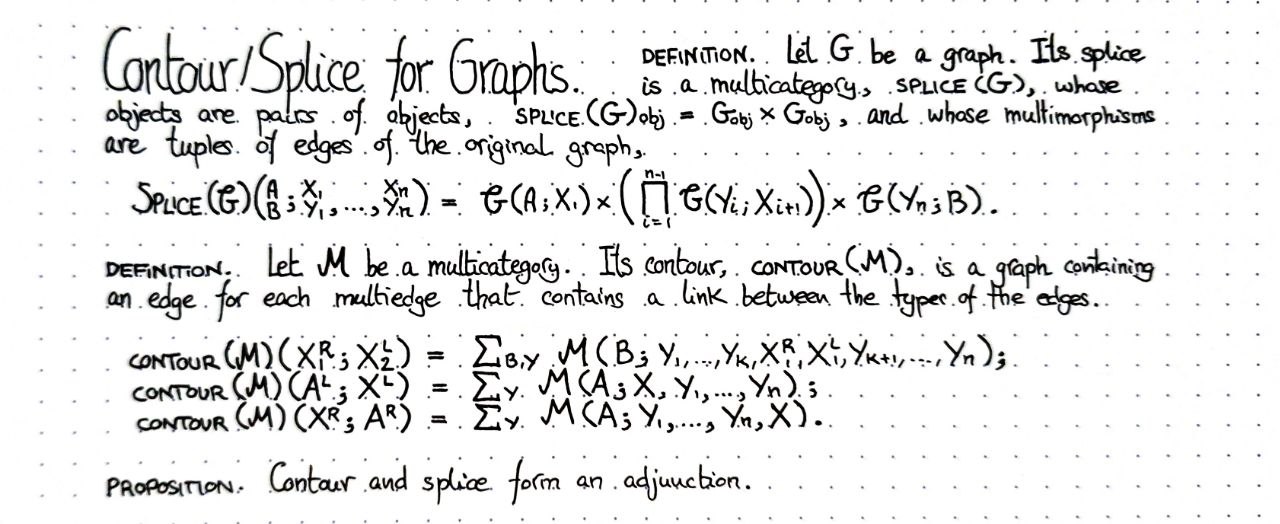 Contour/Splice for Graphs. DEFINITION. Let G be a graph. Its splice
is a multicategory, SPLICE(G), whose
objects are pairs of objects, SPLICE(G)obj = Gobj × Gobj, and whose multimorphisms
are tuples of edges of the original graph,
SPLICE(G)(A B ; X₁ Y₁, ..., Xn Yn) = G(A; X₁) × (∏ i=1 n-1 G(Yi; Xi+1)) × G(Yn; B).
DEFINITION. Let M be a multicategory. Its contour, CONTOUR(M), is a graph containing
an edge for each multiedge that contains a link between the types of the edges.
CONTOUR(M)(X₁ᴿ; X₂ᴸ) = ∑B,Y M(B; Y₁, ..., Yk, X₁ᴿ, X₁ᴸ, Yk+1, ..., Yn);
CONTOUR(M)(Aᴸ; Xᴸ) = ∑Y M(A; X, Y₁, ..., Yn);
CONTOUR(M)(Xᴿ; Aᴿ) = ∑Y M(A; Y₁, ..., Yn, X).
PROPOSITION. Contour and splice form an adjunction.